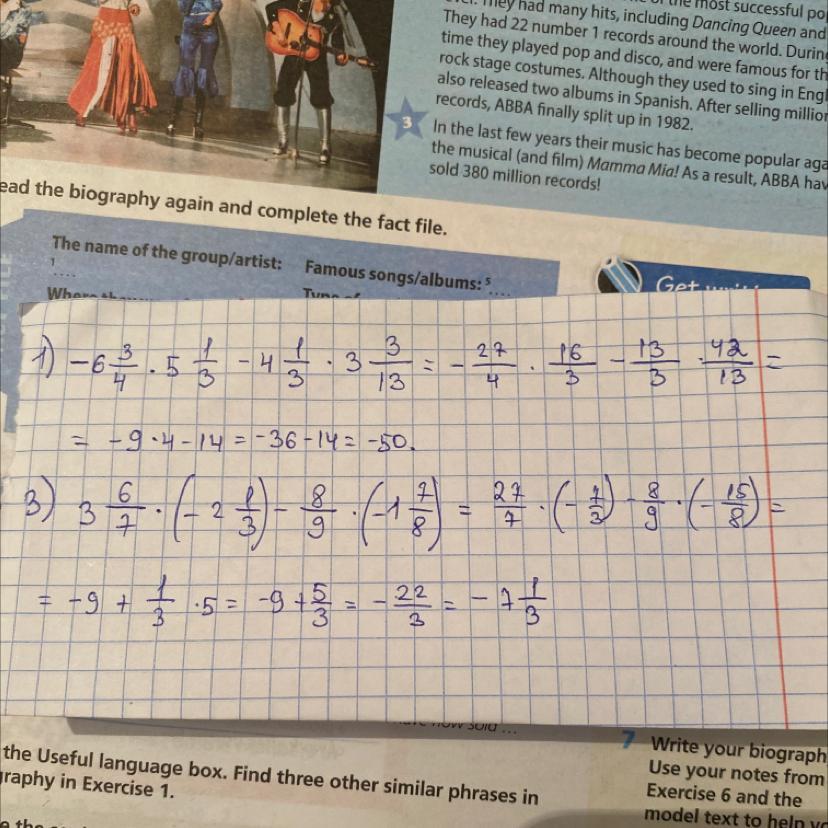 of the most successful
They had many hits, including Dancing Queen and
They had 22 number 1 records around the world. During
time they played pop and disco, and were famous for
rock stage costumes. Although they used to sing in
also released two albums in Spanish. After selling
records, ABBA finally split up in 1982.
3
In the last few years their music has become popular
the musical (and film) Mamma Mia! As a result, ABBA
sold 380 million records!
ead the biography again and complete the fact file.
The name of the group/artist:
1 ....
Famous songs/albums: 5 ....
Get
1) -6 3/4 · 5 1/3 - 4 1/3 · 3 3/13 = - 27/4 · 16/3 - 13/3 · 42/13 =
= -9 · 4 - 14 = -36 - 14 = -50.
3) 3 6/7 · (-2 1/3) - 8/9 · (-1 7/8) = 27/7 · (- 7/3) - 8/9 · (- 15/8) =
= -9 + 1/3 · 5 = -9 + 5/3 = - 22/3 = - 7 1/3
the Useful language box. Find three other similar phrases in
graphy in Exercise 1.
7 Write your biograph
Use your notes from
Exercise 6 and the
model text to help